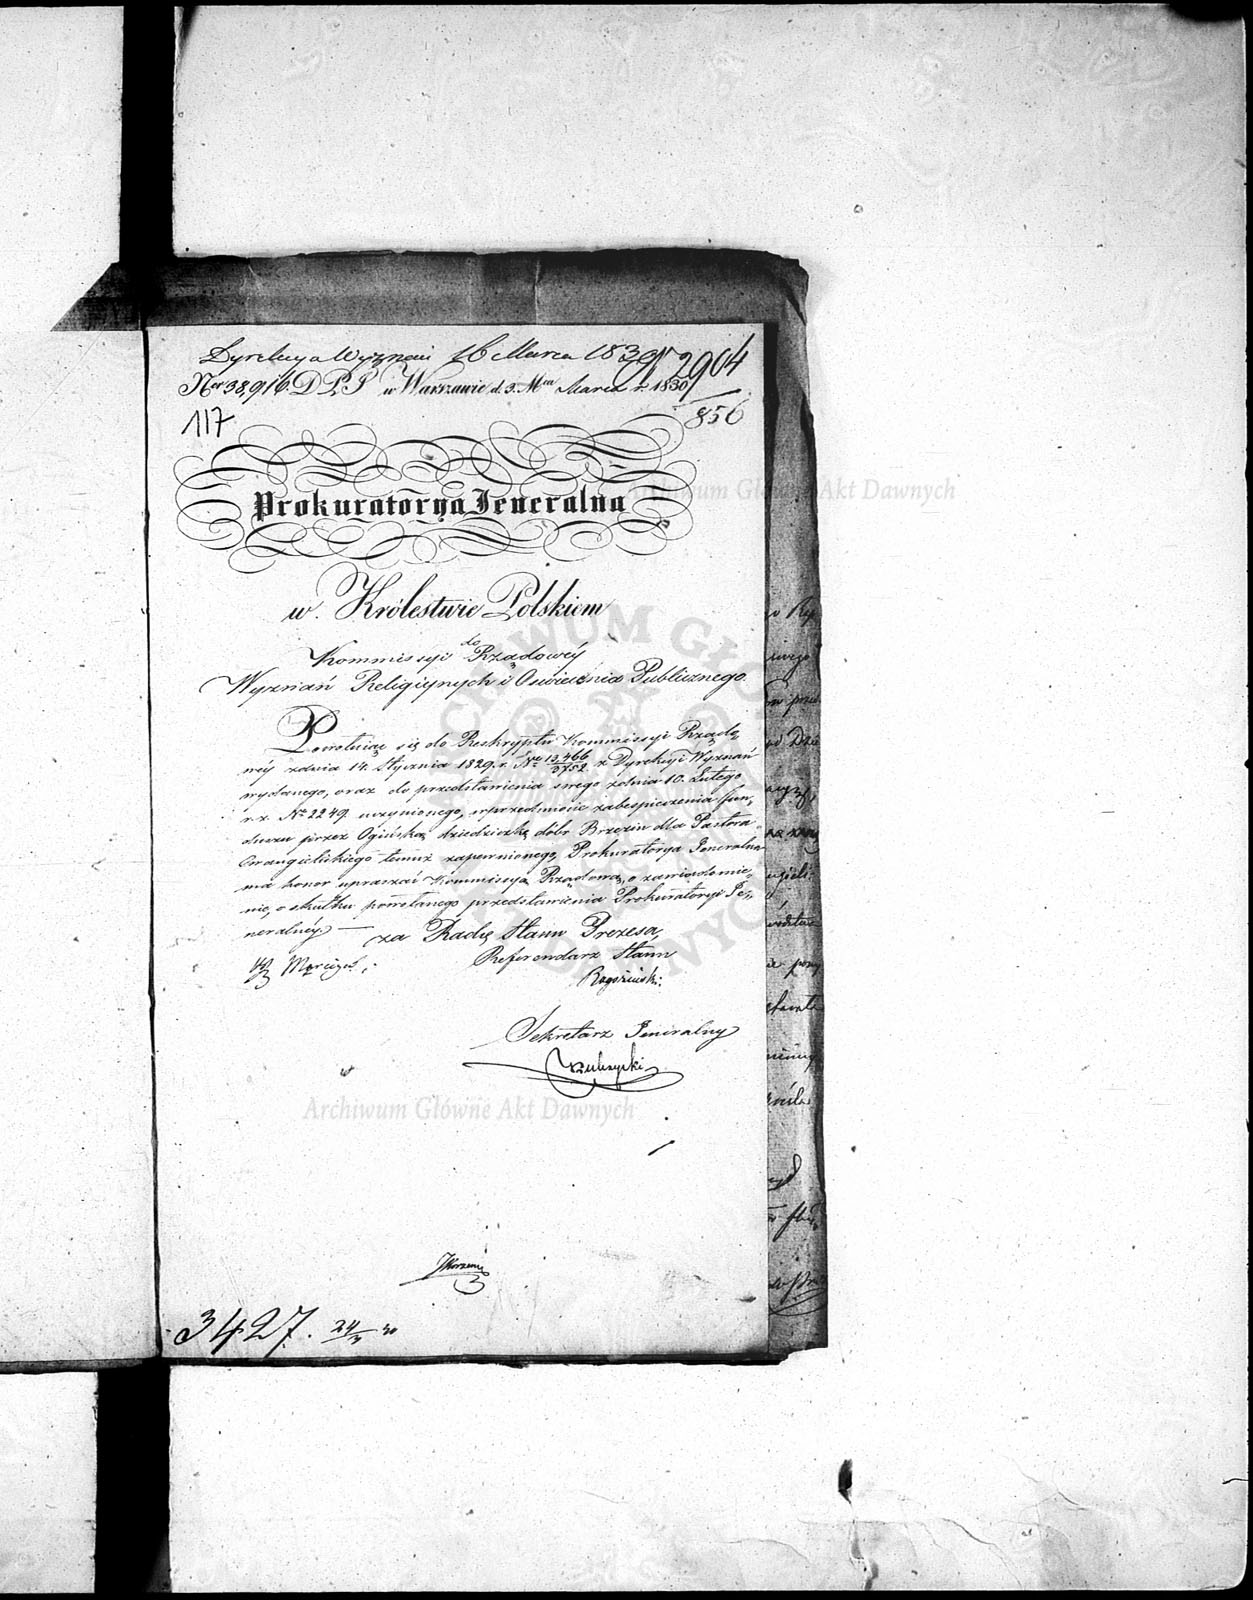 Dyrekcya Wyznań 16 Marca 1830 N 2904
Ner 38,916 D P.P w Warszawie d. 3. Mca Marca r. 1830
856
117
Prokuratorya Jeneralna
w Królestwie Polskiem
do
Kommissyi Rządowéy
Wyznań Religiynych i Oświecenia Publicznego.
Powołuiąc się do Reskryptu Kommissyi Rządo-
wéy zdnia 14. Stycznia 1829. r. Nro 13,466/3752 z Dyrekcyi Wyznań
wydanego, oraz do przedstawienia swego zdnia 10. Lutego
r. z. No 2249 uczynionego, w przedmiocie zabespieczenia fun-
duszu przez Ogińską dziedziczkę dóbr Brzezin dla Pastora
Ewangielickiego temuż zapewnionego, Prokuratorya Jeneralna
ma honor upraszać Kommissyą Rządową, o zawiadomie-
nie, o skutku powołanego przedstawienia Prokuratoryi Je-
neralney. —
za Radcę Stanu Prezesa,
Referendarz Stanu
Sekretarz Jeneralny
3427. 24/3 30
Archiwum Główne Akt Dawnych
Archiwum Główne Akt Dawnych